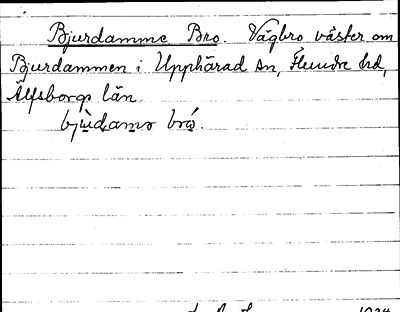 Bjurdamme Bro. Vägbro väster om
Bjurdammen i Upphärad sn, Flundre hd,
Älfsborgs län.